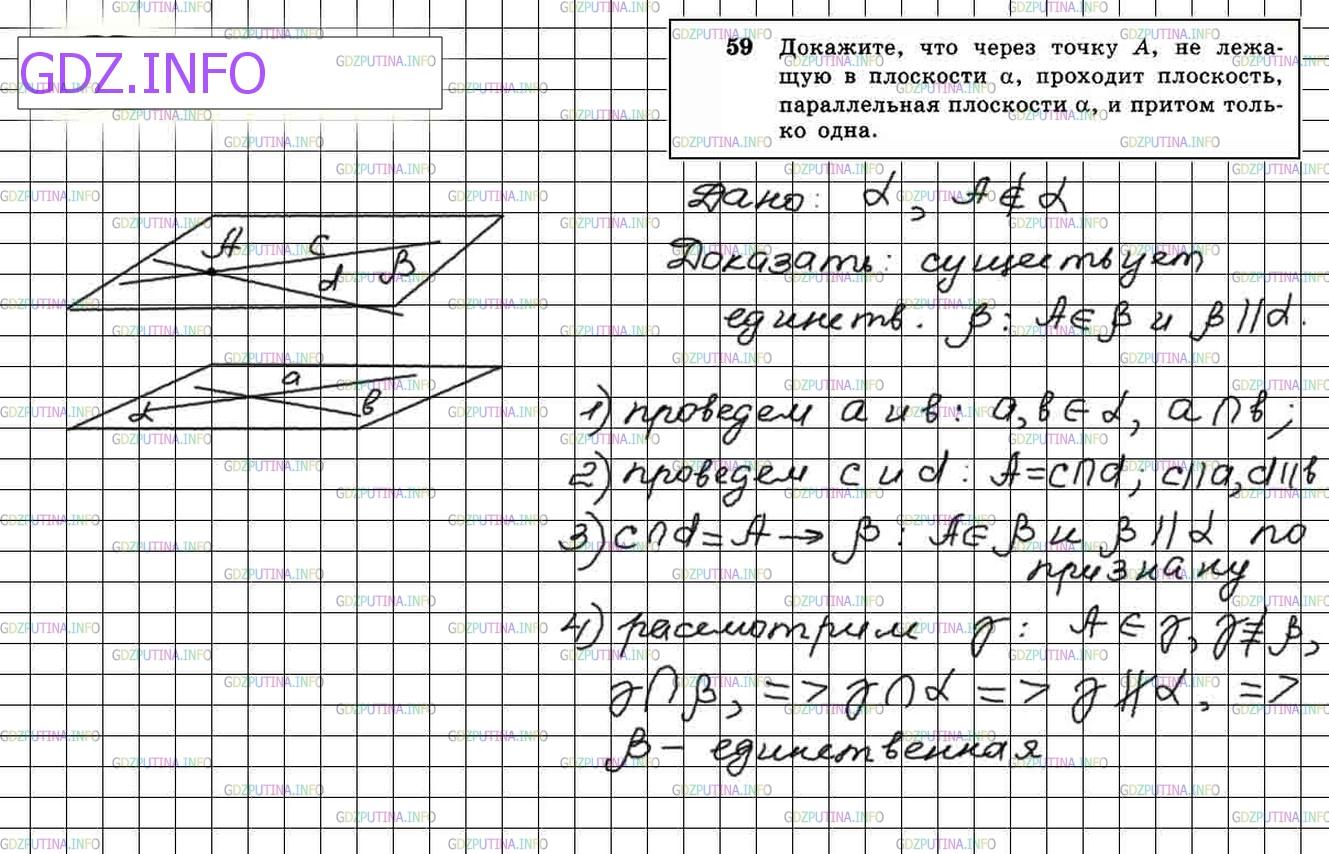 GDZ.INFO
59 Докажите, что через точку A, не лежа-
щую в плоскости α, проходит плоскость,
параллельная плоскости α, и притом толь-
ко одна.
Дано: α, A∉α
Доказать: существует
единств. β: A∈β и β||α.
A c d β
a α в
1) проведем a и в: a,в∈α, a∩в;
2) проведем c и d: A=c∩d; c||a, d||в
3) c∩d=A→ β: A∈β и β||α по
признаку
4) рассмотрим γ: A∈γ, γ≢β,
γ∩β, => γ∩α => γ∦α, =>
β – единственная
GDZPUTINA.INFO